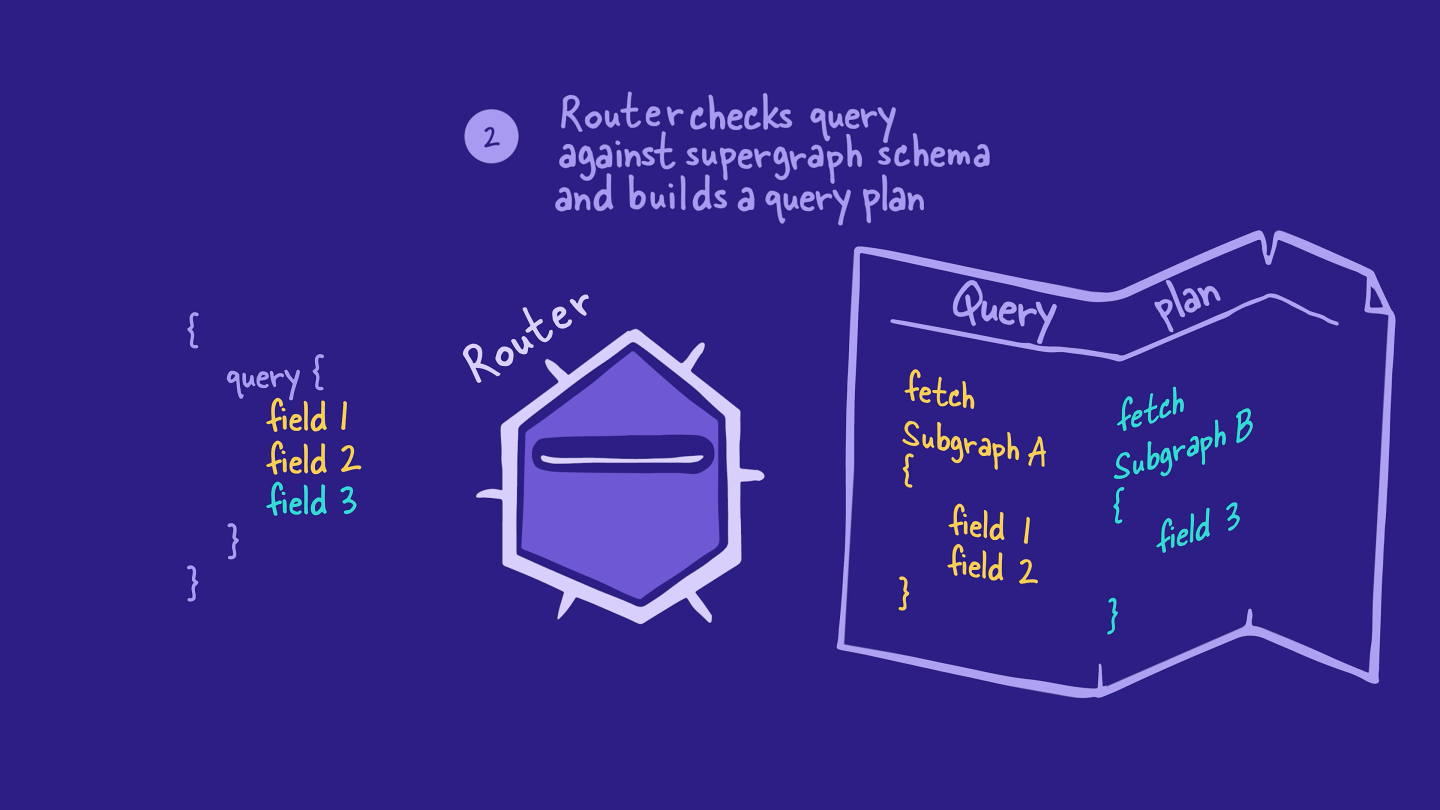 2
Router checks query
against supergraph schema
and builds a query plan
{
query {
field 1
field 2
field 3
}
}
Router
Query plan
fetch
Subgraph A
{
field 1
field 2
}
fetch
Subgraph B
{
field 3
}